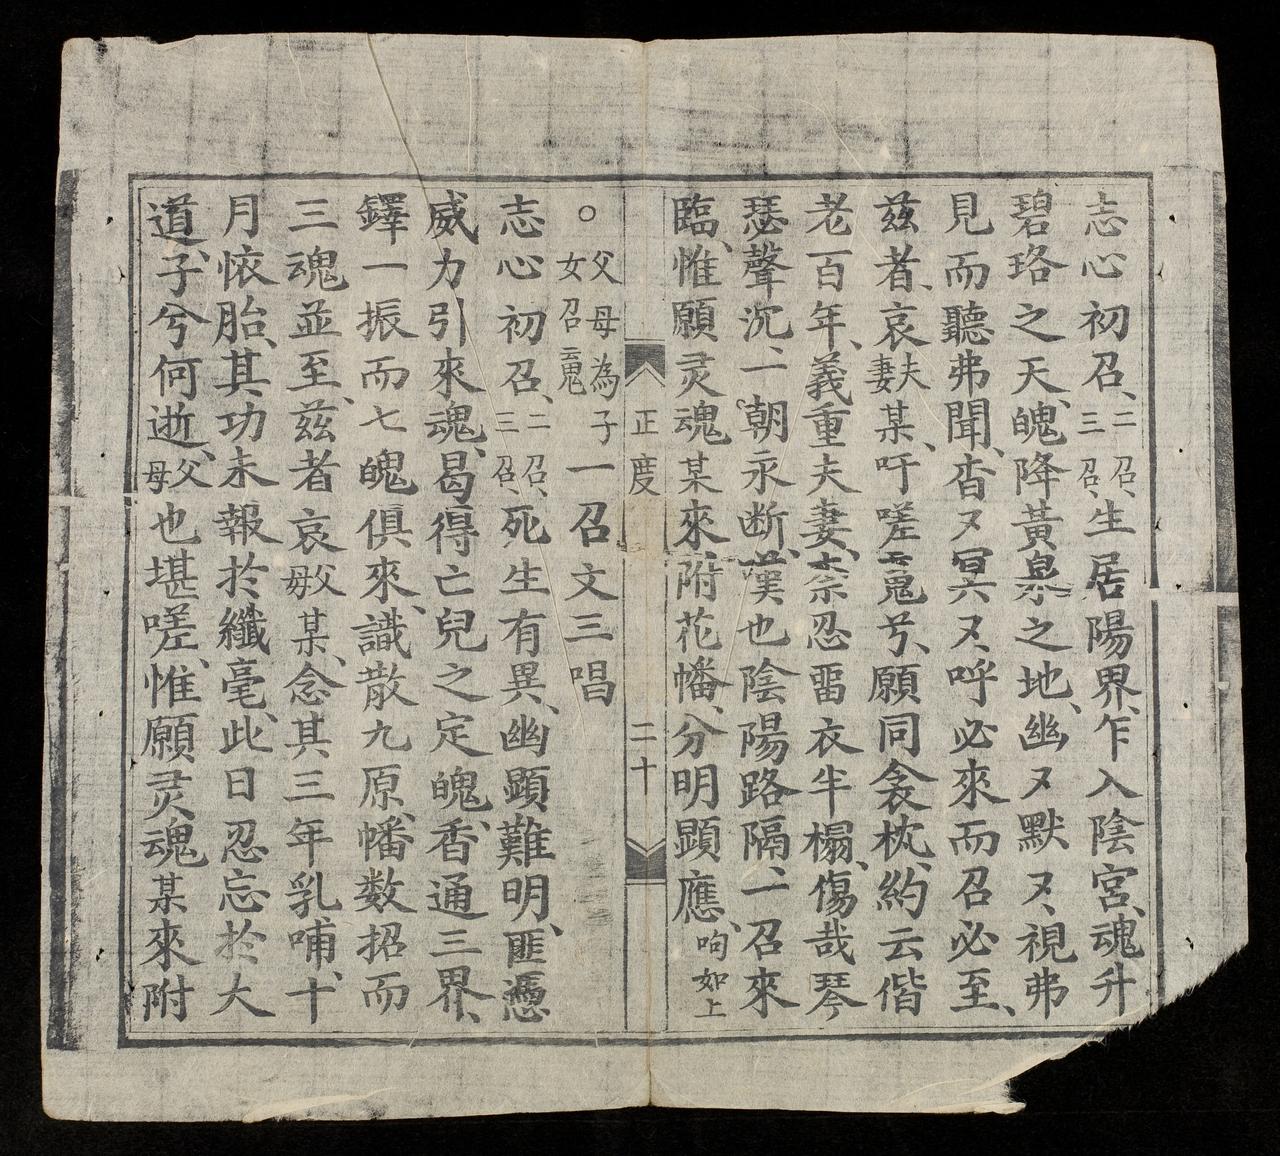 志心初召、二召、三召、生居陽界、乍入陰宮、魂升
碧珞之天、魄降黃泉之地、幽又默又、視弗
見而聽弗聞、杳又冥又、呼必來而召必至、
兹者、哀夫妻某、吁嗟䰟兮、願同衾枕、約云偕
老百年、義重夫妻、柰忍畱衣半榻、傷哉琴
瑟聲沉、一朝永断、漢也陰陽路隔、一召來
臨、惟願灵魂某來附花幡、分明顕應、呴如上
正度 二十
○父母為子女召䰟一召文三唱
志心初召、二召、三召、死生有異、幽顕難明、匪憑
威力引來魂、曷得亡兒之定魄、香通三界、
鐸一振而七魄俱來、識散九原、幡数招而
三魂並至、兹者哀父母某、念其三年乳哺、十
月懷胎、其功未報於纖毫、此日忍忘於大
道、子兮何逝、父母也堪嗟、惟願灵魂某來附